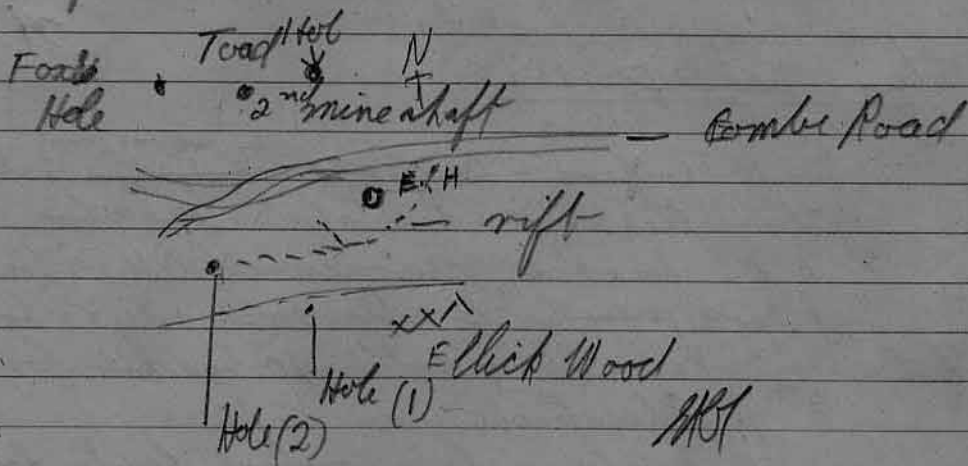 Toad Hol N
Foxs
Hole 2nd mineshaft
Combe Road
E.H
rift
Ellick Wood
Hole (1)
Hole (2)